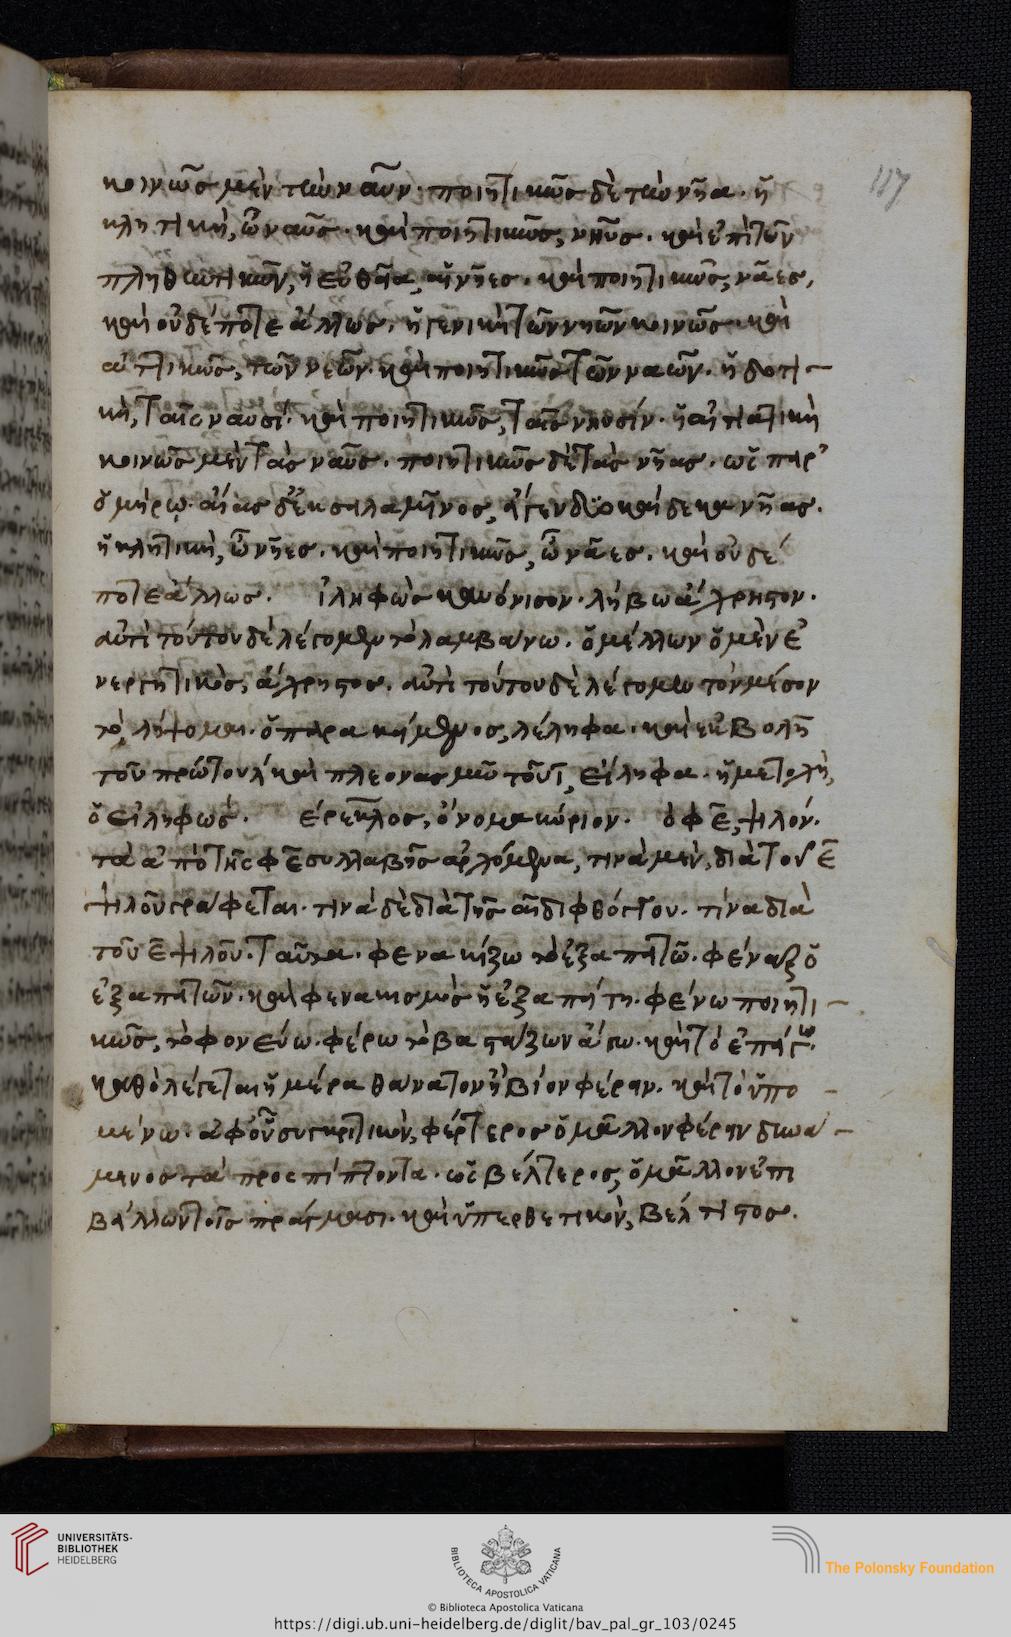 117
κοινῶς μὲν τὼν αῦν· ποιητικῶς δὲ τὼν νῆα· ἡ
κλητικὴ, ὦ ναῦς· καὶ ποιητικῶς, νηῦς· καὶ ἐπὶ τῶν
πληθυντικῶν, ἡ εὐθεῖα, αἱ νῆες· καὶ ποιητικῶς, νᾶες,
καὶ οὐδέποτε ἄλλως· ἡ γενικὴ τῶν νηῶν κοινῶς· καὶ
ἀττικῶς, τῶν νεῶν· καὶ ποιητικῶς τῶν ναῶν· ἡ δοτι
κὴ, ταῖς ναυσί· καὶ ποιητικῶς, ταῖς νηυσίν· ἡ αἰτιατικὴ
κοινῶς μὲν τὰς ναῦς· ποιητικῶς δὲ τὰς νῆας· ὡς παρ'
ὁμήρῳ· αἴας δ' ἐκ σαλαμῖνος, ἄγεν δυοκαίδεκα νῆας.
ἡ κλητικὴ, ὦ νῆες· καὶ ποιητικῶς, ὦ νᾶες· καὶ οὐδέ
ποτε ἄλλως. λήβω ἄχρηστον.
ἀντὶ τούτου δὲ λέγομεν τὸ λαμβάνω· ὁ μέλλων ὁ μὲν ἐ
νεργητικὸς, ἄχρηστος· ἀντὶ τούτου δὲ λέγομεν τὸν μέσον
τὸ, λήψομαι· ὁ παρακείμενος, λέληφα· καὶ ἐκβολῇ
τοῦ πρώτου λ καὶ πλεονασμῷ τοῦ ι, εἴληφα· ἡ μετοχὴ,
ὁ εἰληφώς. ὄνομα κύριον. ὁ φε, ψιλόν.
τὰ ἀπὸ τῆς φε συλλαβῆς ἀρχόμενα, τινὰ μὲν, διὰ τοῦ ε
ψιλοῦ γράφεται· τινὰ δὲ διὰ τῆς αι διφθόγγου· τίνα διὰ
τοῦ ε ψιλοῦ· ταῦτα· φενακίζω τὸ ἐξαπατῶ· φέναξ ὁ
ἐξαπατῶν· καὶ φενακισμὸς ἡ ἐξαπάτη· φένω ποιητι
κῶς, τὸ φονεύω· φέρω τὸ βαστάζων ἄγω· καὶ τὸ ἐπάγω·
καθὸ λέγεται ἡ μέρα θάνατον ἢ βίον φέρειν· καὶ τὸ ὑπο
μένω· ἀφ' οὗ συγκριτικὸν, φέρτερος ὁ μᾶλλον φέρειν δυνά
μενος τὰ προσπίπτοντα· ὡς βέλτερος, ὁ μᾶλλον ἐπι
βάλλων τοῖς πράγμασι· καὶ ὑπερθετικὸν, βέλτιστος.
UNIVERSITÄTS-
BIBLIOTHEK
HEIDELBERG
BIBLIOTECA APOSTOLICA VATICANA
The Polonsky Foundation
© Biblioteca Apostolica Vaticana
https://digi.ub.uni-heidelberg.de/diglit/bav_pal_gr_103/0245